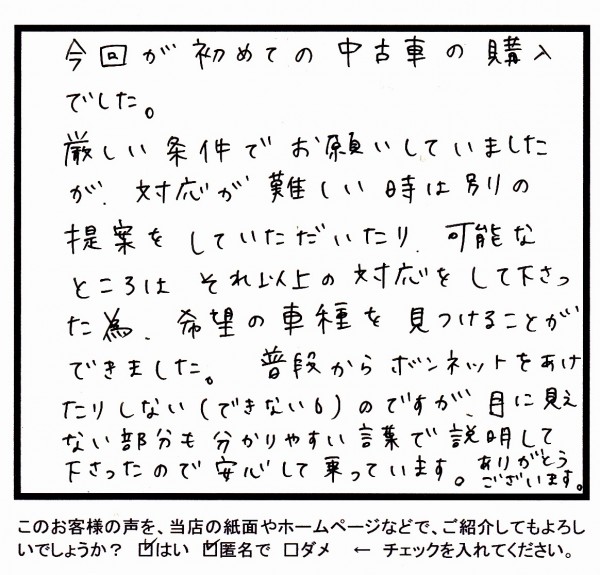 今回が初めての中古車の購入
でした。
厳しい条件でお願いしていました
が、対応が難しい時は別の
提案をしていただいたり、可能な
ところはそれ以上の対応をして下さっ
た為、希望の車種を見つけることが
できました。普段からボンネットをあけ
たりしない(できない6)のですが、目に見え
ない部分も分かりやすい言葉で説明して
下さったので安心して乗っています。ありがとう
ございます。
このお客様の声を、当店の紙面やホームページなどで、ご紹介してもよろし
いでしょうか? ☑はい ☑匿名で □ダメ ← チェックを入れてください。